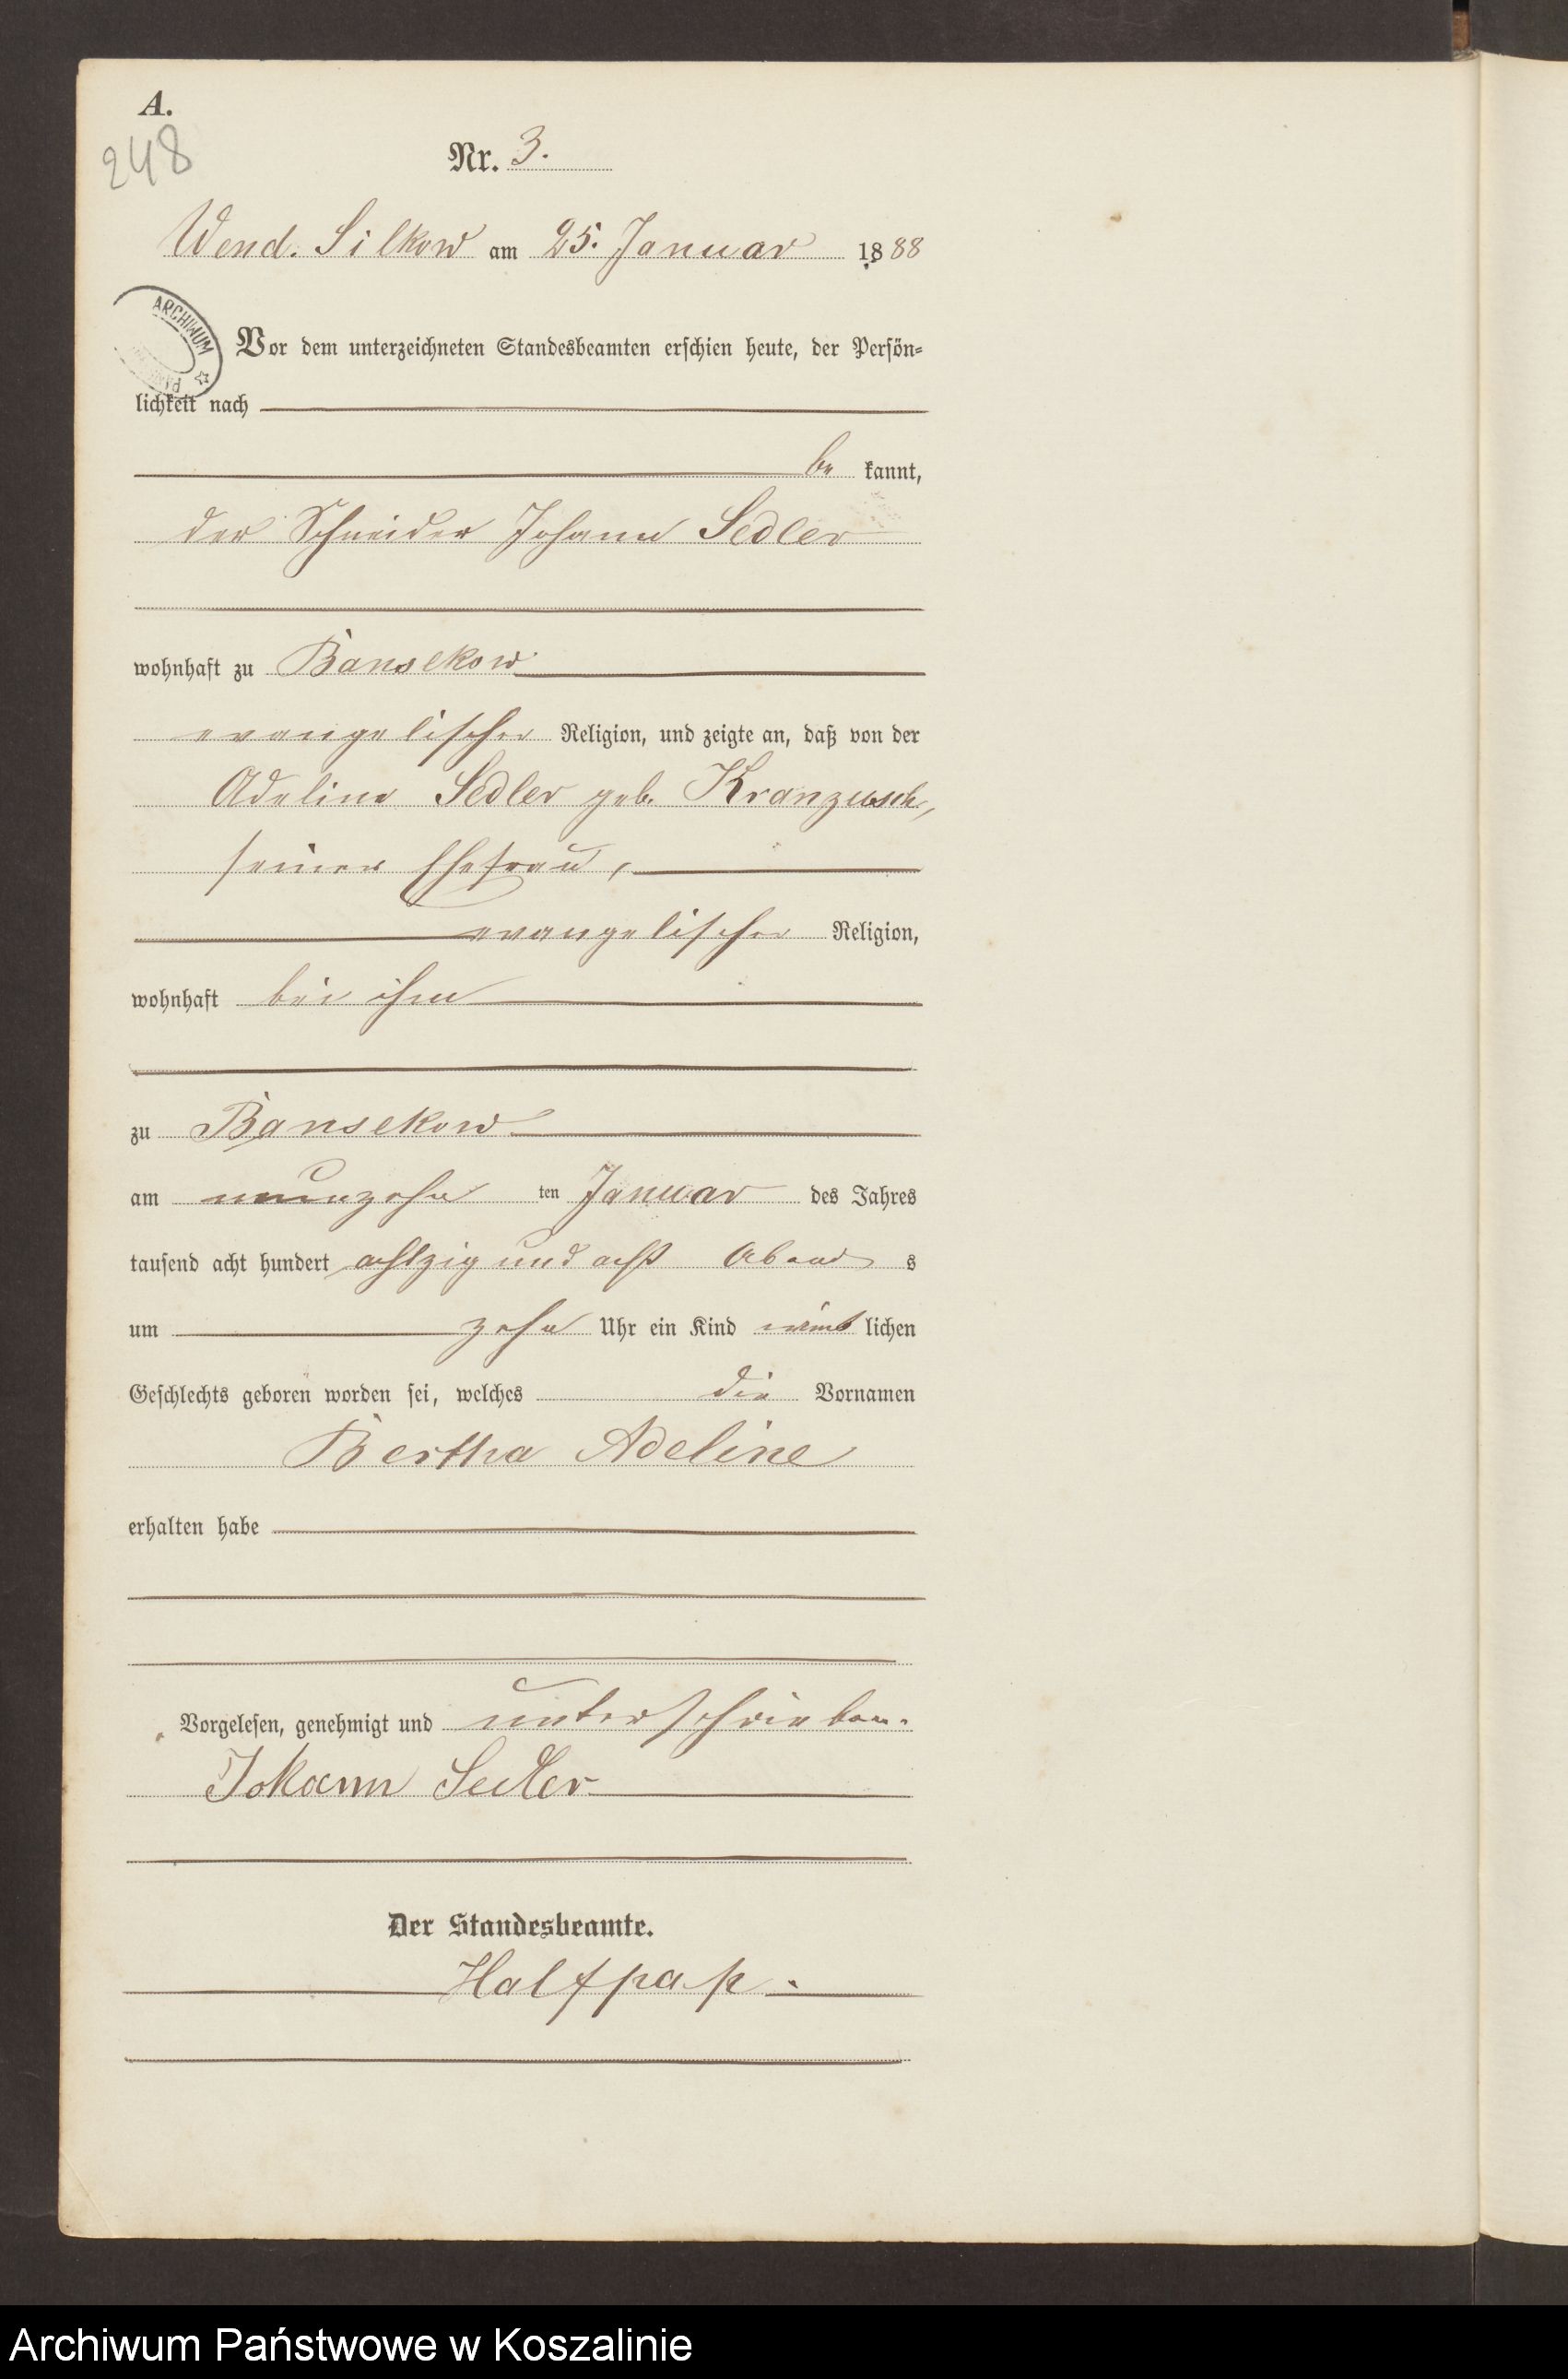 A.
248
Nr. 3.
Wend. Silkow am 25. Januar 1888
ARCHIWUM
Vor dem unterzeichneten Standesbeamten erschien heute, der Persön=
lichkeit nach
be kannt,
der Schneider Johann Sedler
wohnhaft zu Bansekow
evangelischer Religion, und zeigte an, daß von der
Adeline Sedler geb. Kranzusch,
seiner Ehefrau,
evangelischer Religion,
wohnhaft bei ihm
zu Bansekow
am neunzehn ten Januar des Jahres
tausend acht hundert achtzig und acht Abend s
um zehn Uhr ein Kind weib lichen
Geschlechts geboren worden sei, welches die Vornamen
Bertha Adeline
erhalten habe
Vorgelesen, genehmigt und unterschrieben.
Johann Sedler
Der Standesbeamte.
Halfpap.
Archiwum Państwowe w Koszalinie